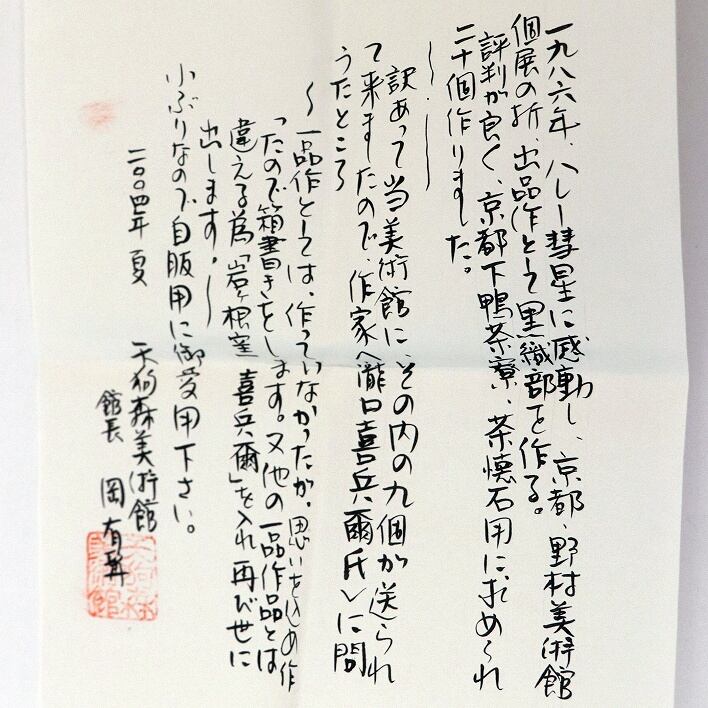 一九八六年、ハレー彗星に感動し、京都・野村美術館
個展の折、出品作として黒織部を作る。
評判が良く、京都下鴨茶寮、茶懐石用に求められ
二十個作りました。
〜・――
訳あって当美術館に、その内の九個が送られ
て来ましたので、作家へ瀧口喜兵爾氏〉に問
うたところ
〜一品作としては、作っていなかったが、思いを込め作
ったので箱書きをします。又他の一品作品とは
違える為「岩ヶ根窯」喜兵爾」を入れ再び世に
出します。〜
小ぶりなので自服用に御愛用下さい。
二〇〇四年 夏
天狗森美術館
館長 岡有